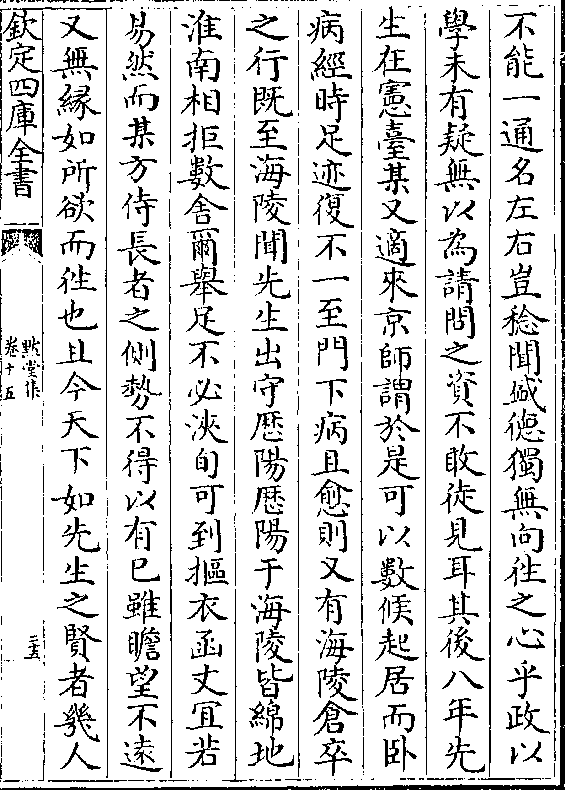 不能一通名左右豈稔聞盛德獨無向徃之心乎政以
學未有疑無以為請問之資不敢徒見耳其後八年先
生在憲臺某又適來京師謂於是可以數候起居而卧
病經時足迹復不一至門下病且愈則又有海陵倉卒
之行既至海陵聞先生出守歴陽歴陽于海陵皆綿地
淮南相拒數舎爾舉足不必浹旬可到摳衣函丈冝若
易然而某方侍長者之側勢不得以有已雖瞻望不遠
又無縁如所欲而徃也且今天下如先生之賢者幾人
欽定四庫全書
默堂集
卷十五
二五